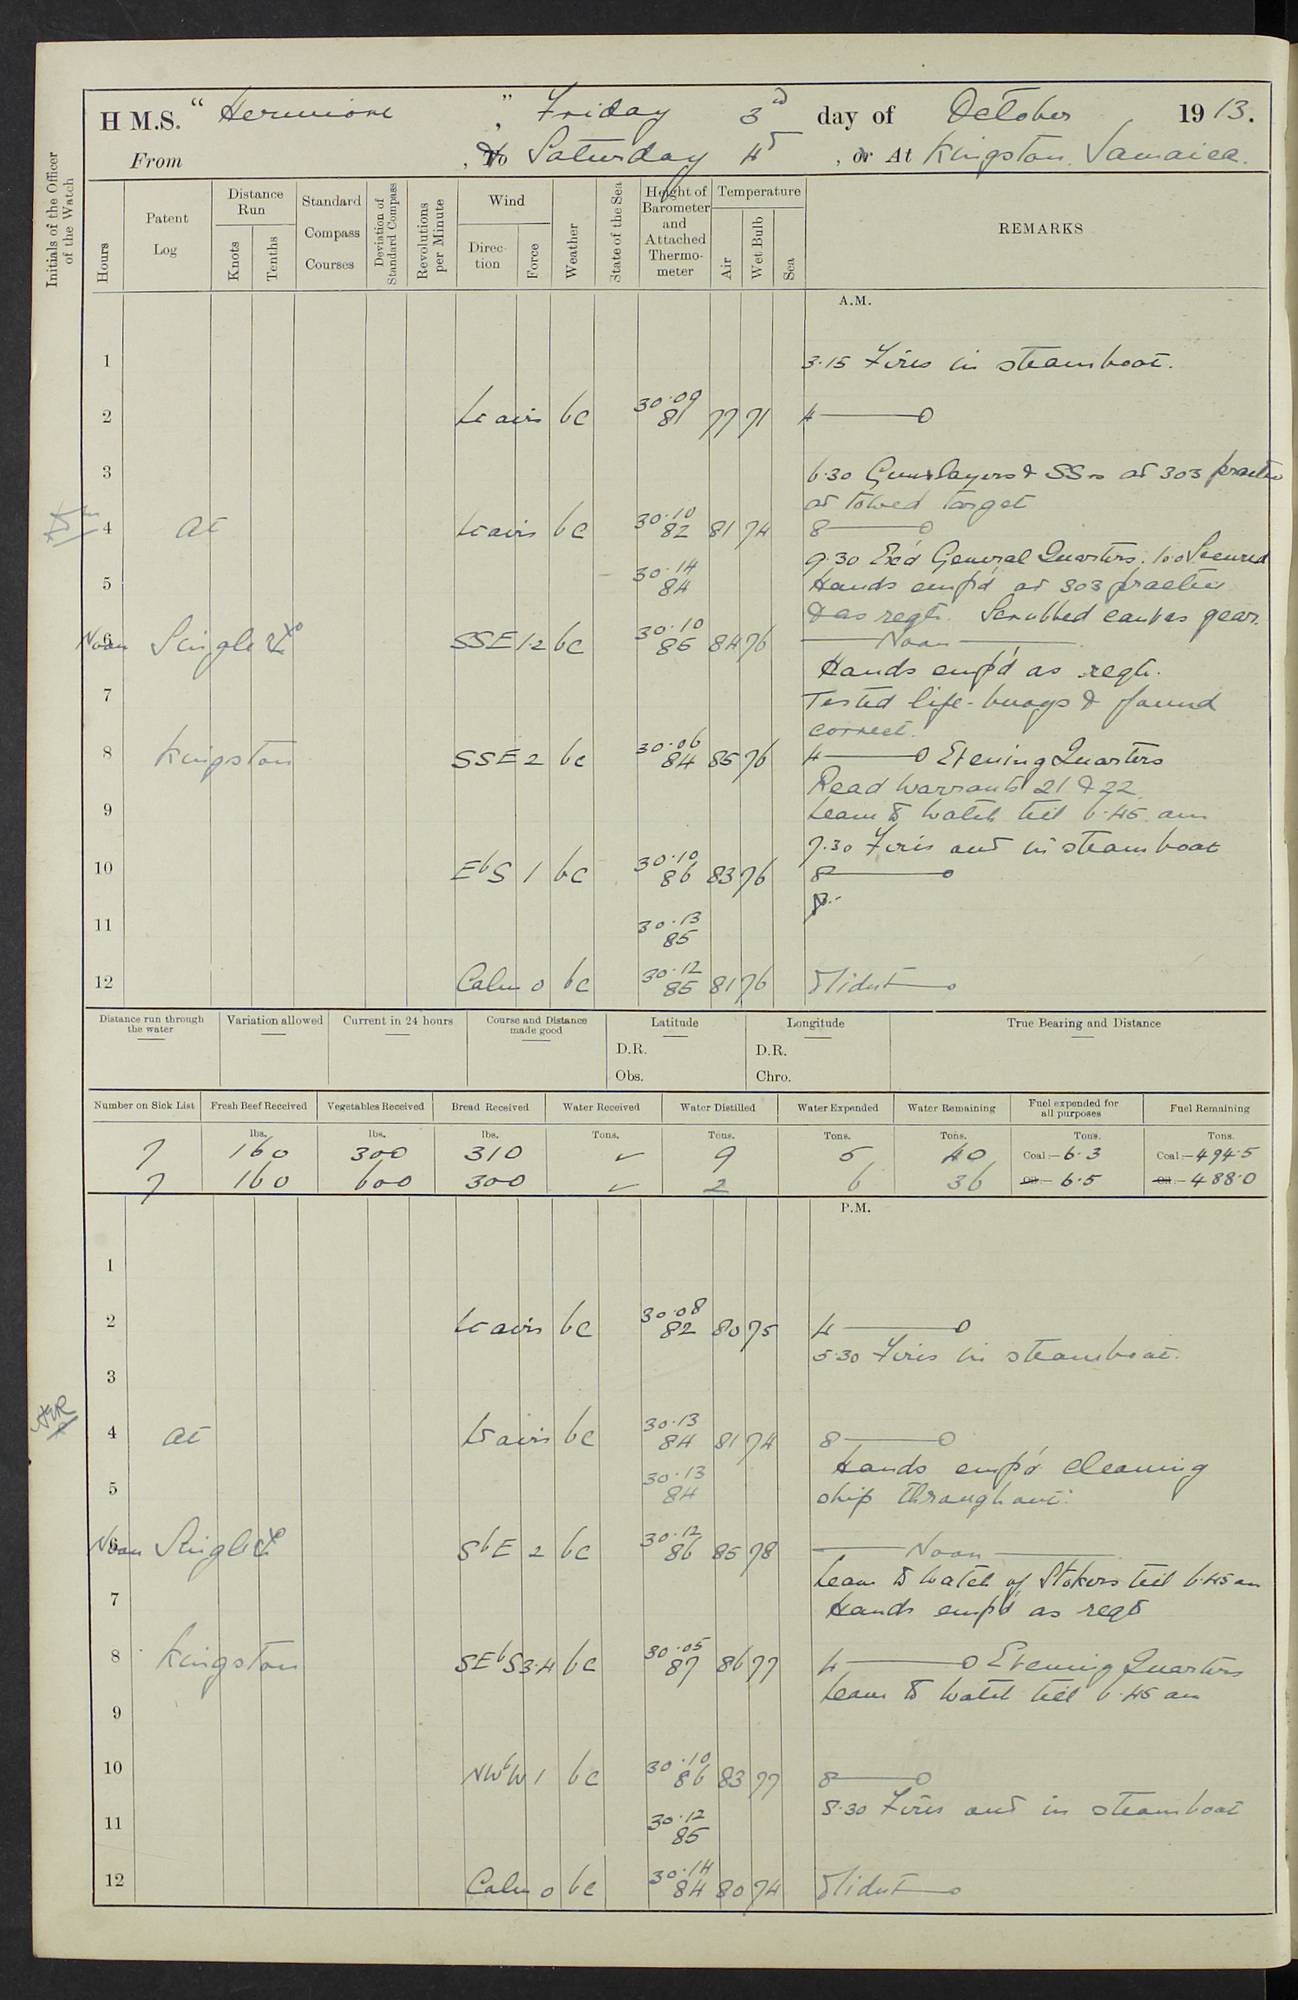 H M.S. " Hermione " , Friday 3rd day of October 1913.
From , To Saturday 4th , or At Kingston, Jamaica.
Initials of the Officer of the Watch
Hours
Patent Log
Distance Run
Knots
Tenths
Standard Compass Courses
Deviation of Standard Compass
Revolutions per Minute
Wind
Direction
Force
Weather
State of the Sea
Height of Barometer and Attached Thermometer
Temperature
Air
Wet Bulb
Sea
REMARKS
A.M.
1 3.15 Fires in steamboat.
2 Lt airs bc 30.09 81 77 71 4
3 6.30 Gunlayers & SSrs at 303 practice
at towed target
4 At Lt airs bc 30.10 82 81 74 8
9.30 Exd General Quarters. 10.0 Secured
5 30.14 84 Hands emp'd at 303 practice
& as reqt. Scrubbed canvas gear.
Noon 6 Single Ro SSE 1.2 bc 30.10 85 84 76 Noon
Hands emp'd as reqt.
7 Tested life-buoys & found
correct.
8 Kingston SSE 2 bc 30.06 84 85 76 4 Evening Quarters
Read Warrants 21 & 22
9 Leave to Watch till 6.45 am
7.30 Fires out in steamboat
10 EbS 1 bc 30.10 86 83 76 8
8.
11 30.13 85
12 Calm 0 bc 30.12 85 81 76 Midnt
Distance run through the water
Variation allowed
Current in 24 hours
Course and Distance made good
Latitude
D.R.
Obs.
Longitude
D.R.
Chro.
True Bearing and Distance
Number on Sick List Fresh Beef Received Vegetables Received Bread Received Water Received Water Distilled Water Expended Water Remaining Fuel expended for all purposes Fuel Remaining
lbs. lbs. lbs. Tons. Tons. Tons. Tons. Tons. Tons.
7 160 300 310 ✓ 9 5 40 Coal:- 6.3 Coal:- 494.5
7 160 600 300 ✓ 2 6 36 Oil:- 6.5 Oil:- 488.0
P.M.
1
2 Lt airs bc 30.08 82 80 75 4
5.30 Fires in steamboat.
3
4 At Lt airs bc 30.13 84 81 74 8
Hands emp'd cleaning
5 30.13 84 ship throughout.
Noon 6 Single Ro SbE 2 bc 30.12 86 85 78 Noon
Leave to Watch of Stokers till 6.45 am
7 Hands emp'd as reqt
8 Kingston SEbS 3.4 bc 30.05 87 86 77 4 Evening Quarters
Leave to Watch till 6.45 am
9
10 NWbW 1 bc 30.10 86 83 77 8
8.30 Fires out in steamboat
11 30.12 85
12 Calm 0 bc 30.14 84 80 74 Midnt